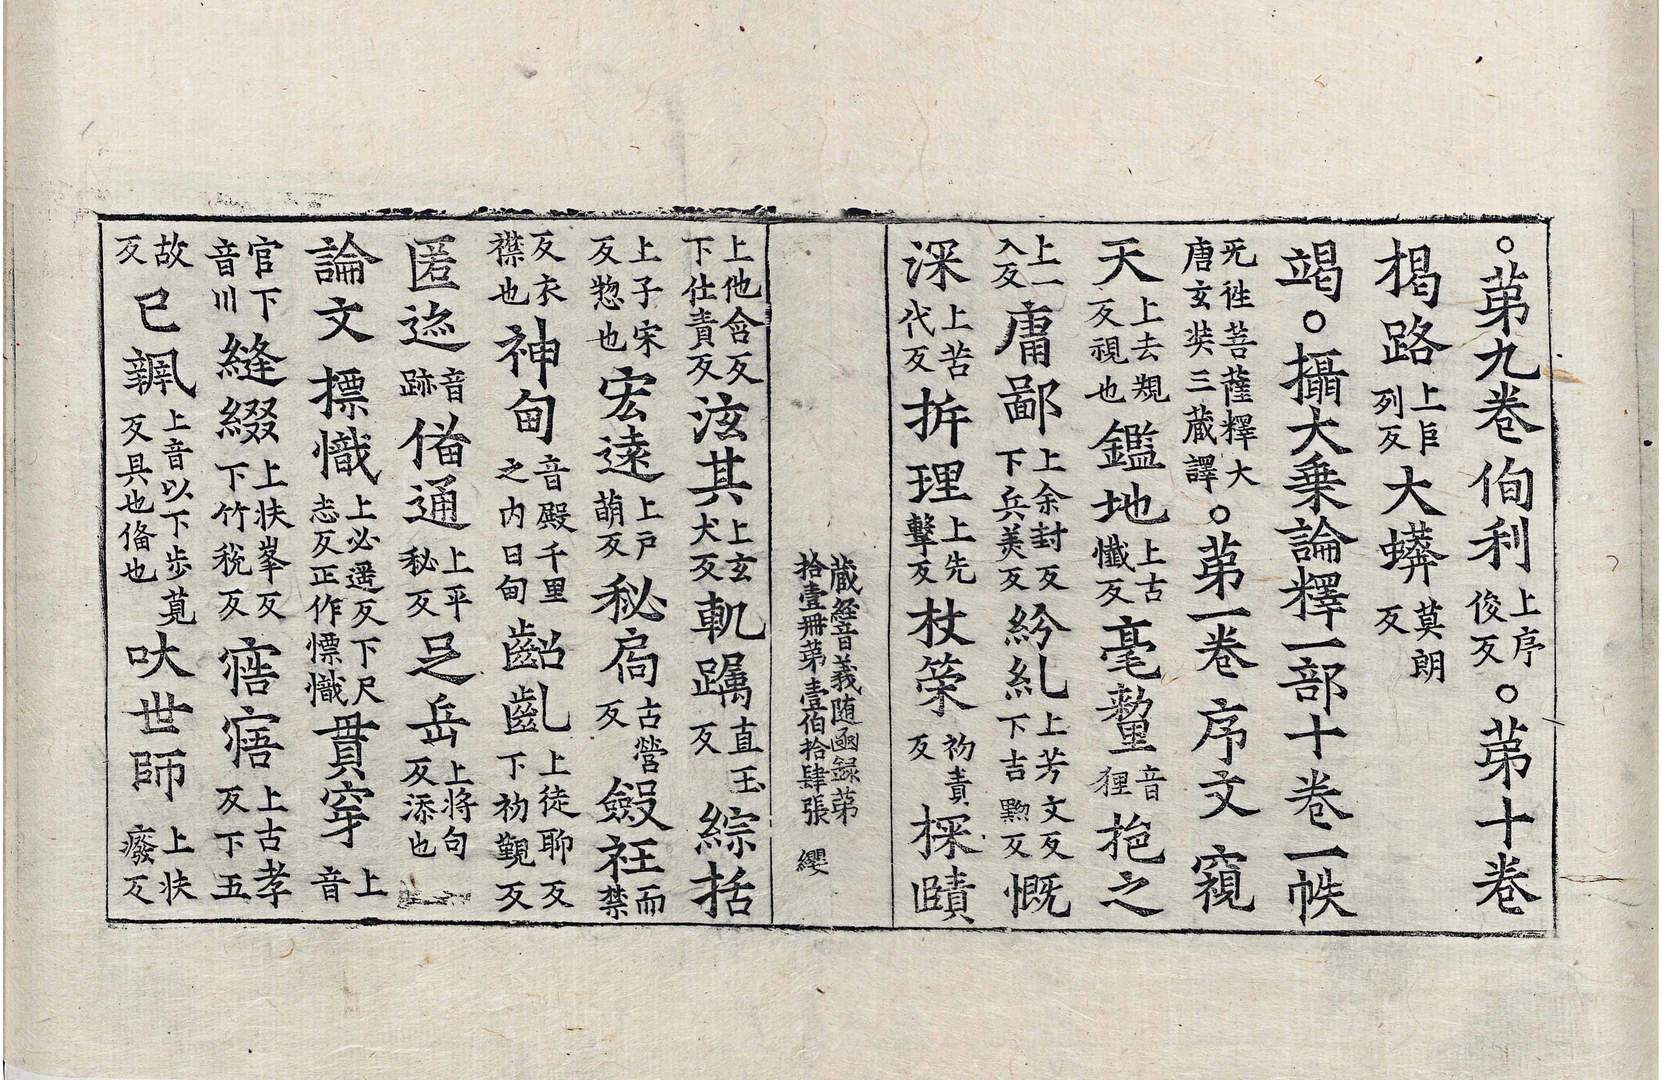 ○苐九卷 伨利上序俊反○苐十卷
揭路上巨列反 大蟒莫朗反
竭○攝大乗論釋一部十卷一帙
无性菩薩釋大唐玄奘三蔵譯○苐一卷 序文 窺
天上去規反視也 鑑地上古懺反 毫釐音狸 挹之
上一入反 庸鄙上余封反下兵美反 紛糺上芳文反下吉黝反 慨
深上苦代反 拆理上先擊反 杖筞初責反 探賾
蔵經音義随函録苐
拾壹冊苐壹伯拾肆張 纓
上他含反下仕責反 泫其上玄犬反 軌躅直玉反 綜括
上子宋反惣也 宏遠上戶萌反 秘扃古營反 斂衽而禁
反衣襟也 神甸音殿千里之內曰甸 齠齓上徒聊反下初覲反
匿迹音跡 俻通上平秘反 足岳上將句反添也
論文 摽幟上必遥反下尺志反正作幖幟 貫穿上音
官下音川 縫綴上扶峯反下竹稅反 窹寤上古孝反下五
故反 巳諷上音以下步莧反具也俻也 吠世師上扶癈反